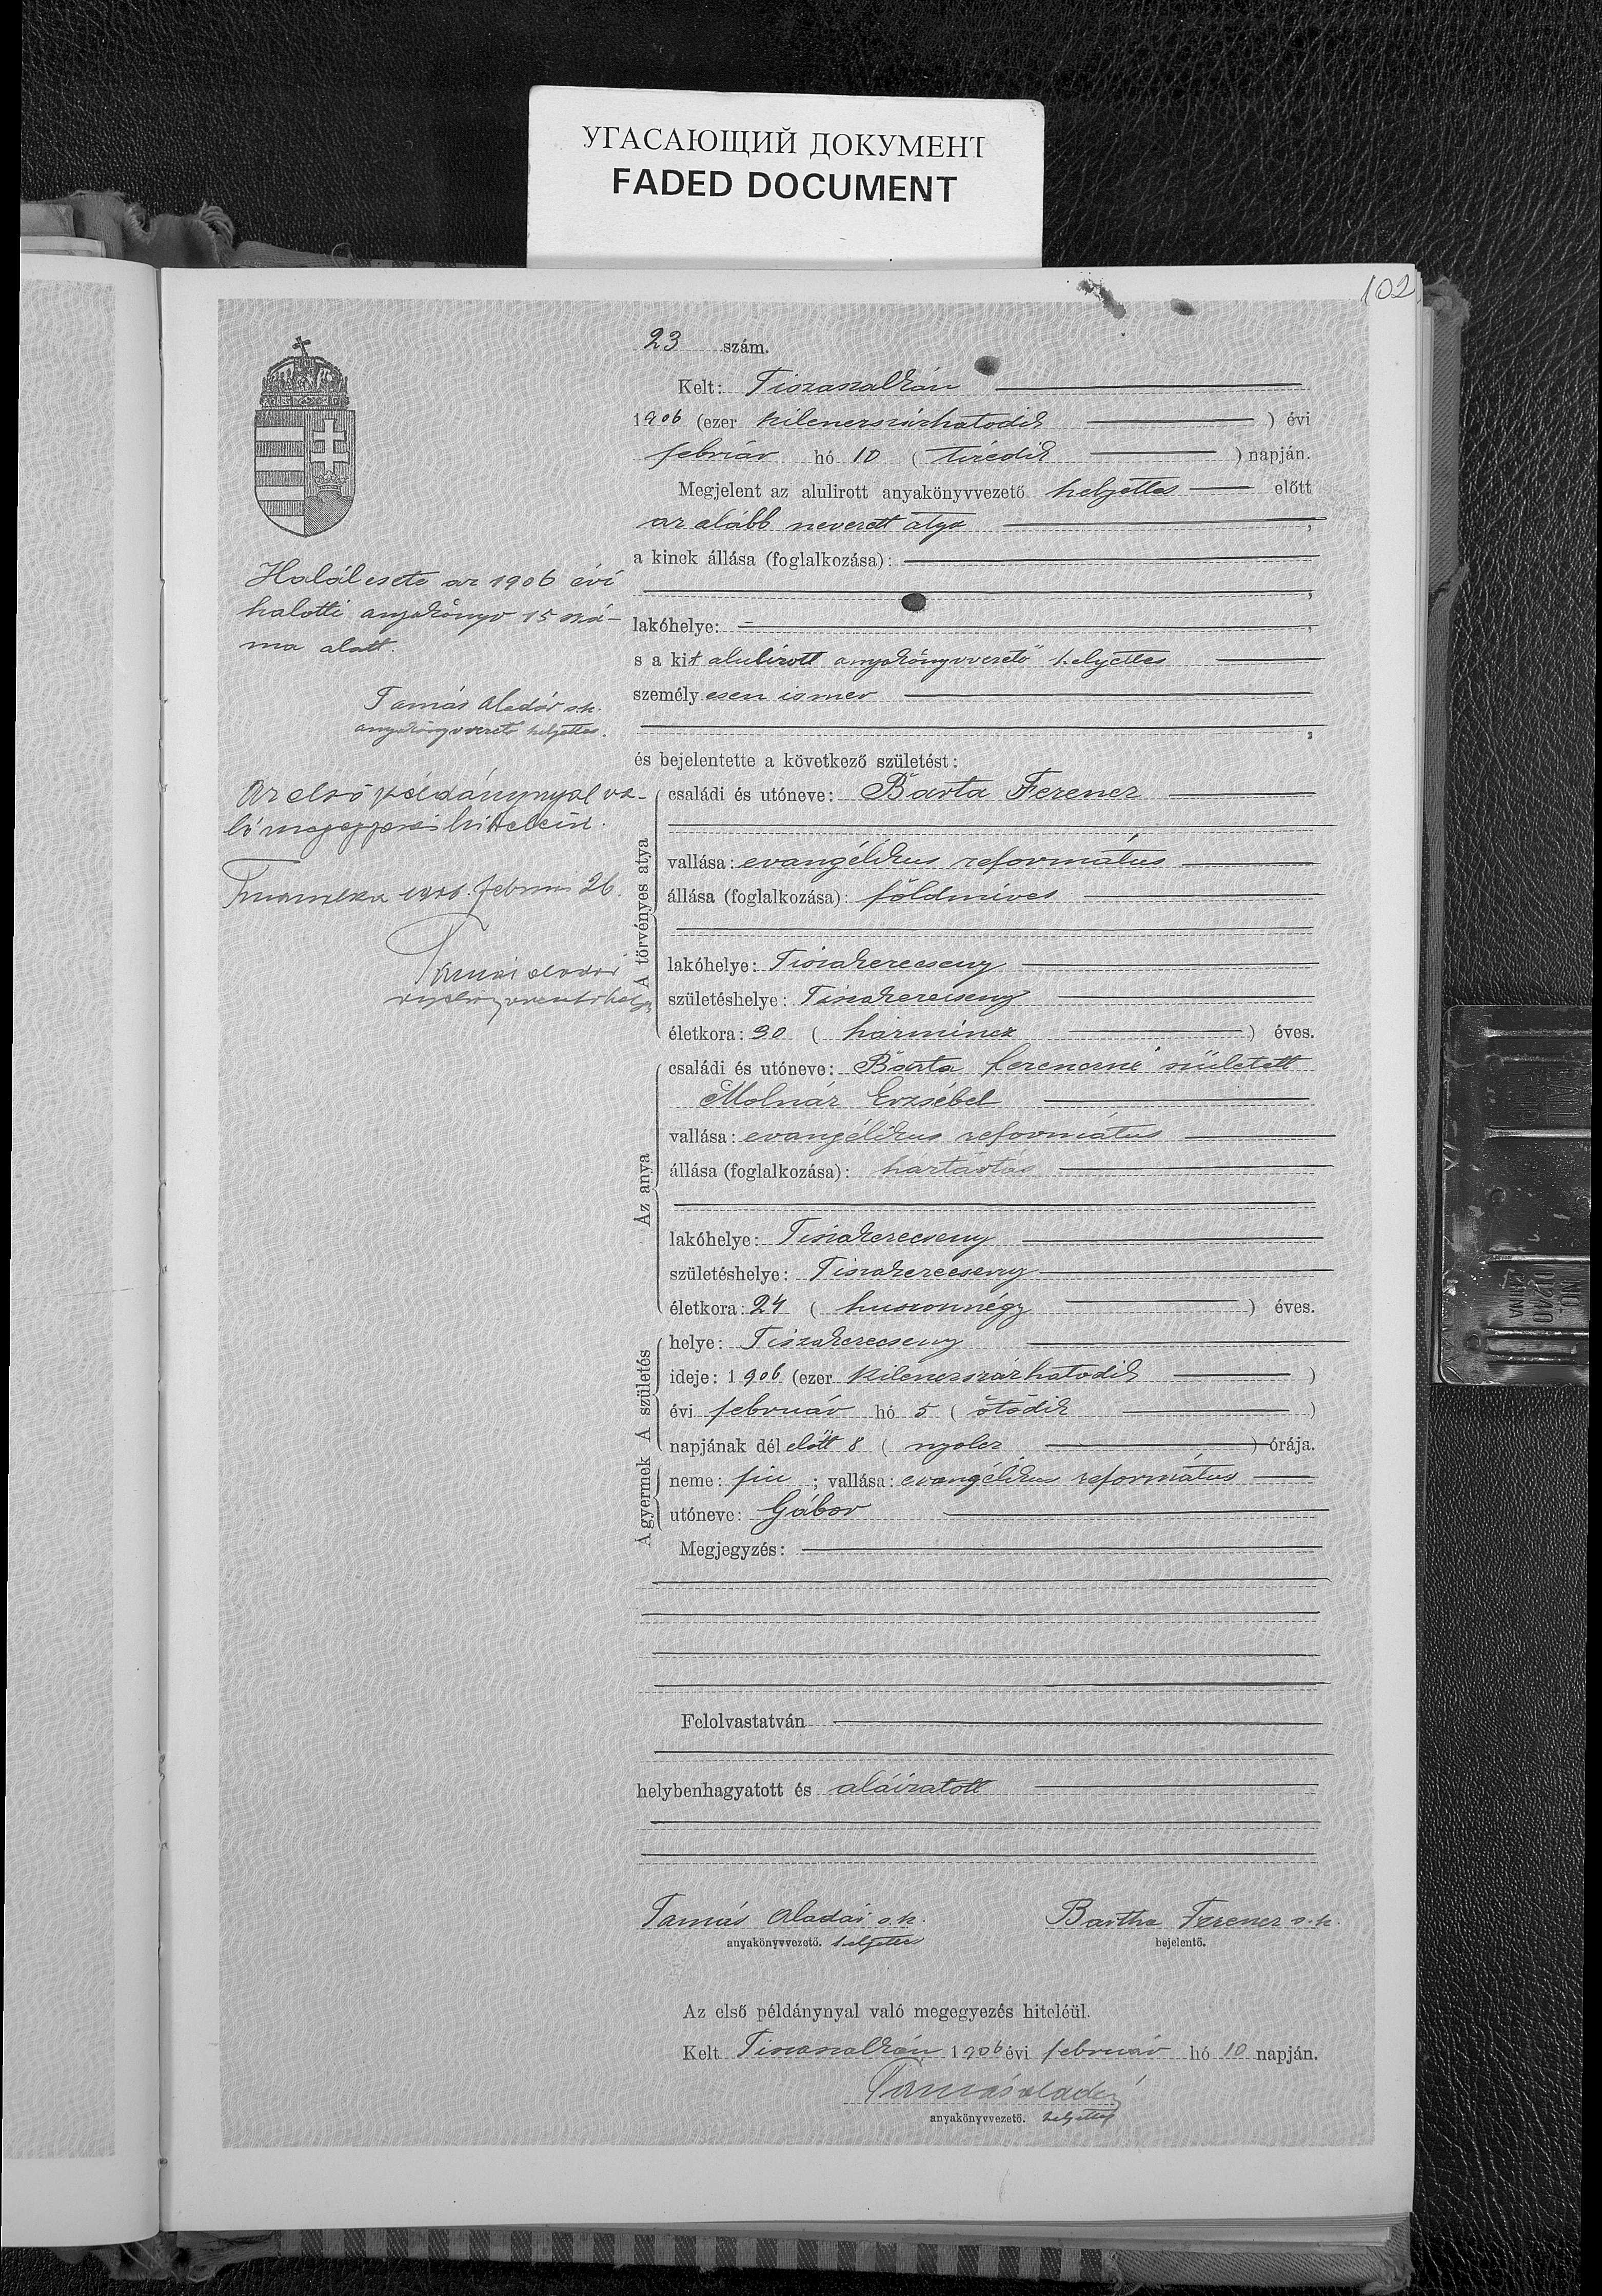 УГАСАЮЩИЙ ДОКУМЕНТ
FADED DOCUMENT
102
23 szám.
Kelt: Tiszaszalkán
1906 (ezer kilenczszázhatodik) évi
február hó 10 (tizedik) napján.
Megjelent az alulirott anyakönyvvezető helyettes előtt
az alább nevezett atya,
a kinek állása (foglalkozása):
lakóhelye:
s a kit alulirott anyakönyvvezető helyettes
személyesen ismer
és bejelentette a következő születést:
A törvényes atya
családi és utóneve: Barta Ferencz
vallása: evangélikus református
állása (foglalkozása): földmíves
lakóhelye: Tiszakerecseny
születéshelye: Tiszakerecseny
életkora: 30 (harmincz) éves.
Az anya
családi és utóneve: Barta Ferenczné született
Molnár Erzsébet
vallása: evangélikus református
állása (foglalkozása): háztartás
lakóhelye: Tiszakerecseny
születéshelye: Tiszakerecseny
életkora: 24 (huszonnégy) éves.
A születés
helye: Tiszakerecseny
ideje: 1906 (ezer kilenczszázhatodik)
évi február hó 5 (ötödik)
napjának dél előtt 8 (nyolcz) órája.
A gyermek
neme: fiu; vallása: evangélikus református
utóneve: Gábor
Megjegyzés:
Felolvastatván
helybenhagyatott és aláiratott
Tamás Aladár s.k.
anyakönyvvezető. helyettes
Bartha Ferencz s.k.
bejelentő.
Az első példánynyal való megegyezés hiteléül.
Kelt Tiszaszalkán 1906 évi február hó 10 napján.
Tamás Aladár
anyakönyvvezető. helyettes
Halálesete az 1906 évi
halotti anyakönyv 15 szá-
ma alatt.
Tamás Aladár s.k.
anyakönyvvezető helyettes.
Az első példánynyal va-
ló megegyezés hiteléül.
1906. február 26.
Tamás Aladár
anyakönyvvezető hely.
NO.
0240
CHINA